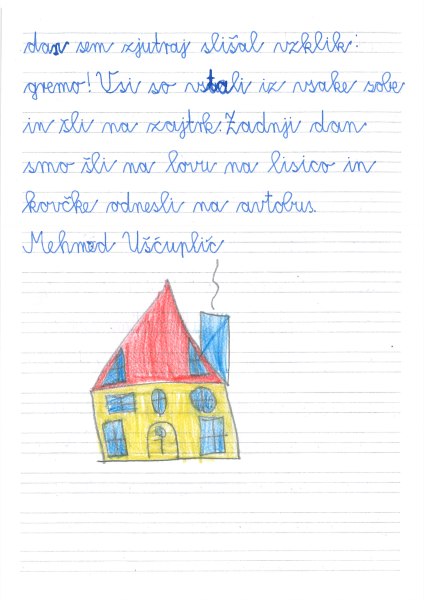 dan sem zjutraj slišal vzklik:
gremo! Vsi so vstali iz vsake sobe
in šli na zajtrk. Zadnji dan
smo šli na lovu na lisico in
kovčke odnesli na avtobus.
Mehmed Uščuplić